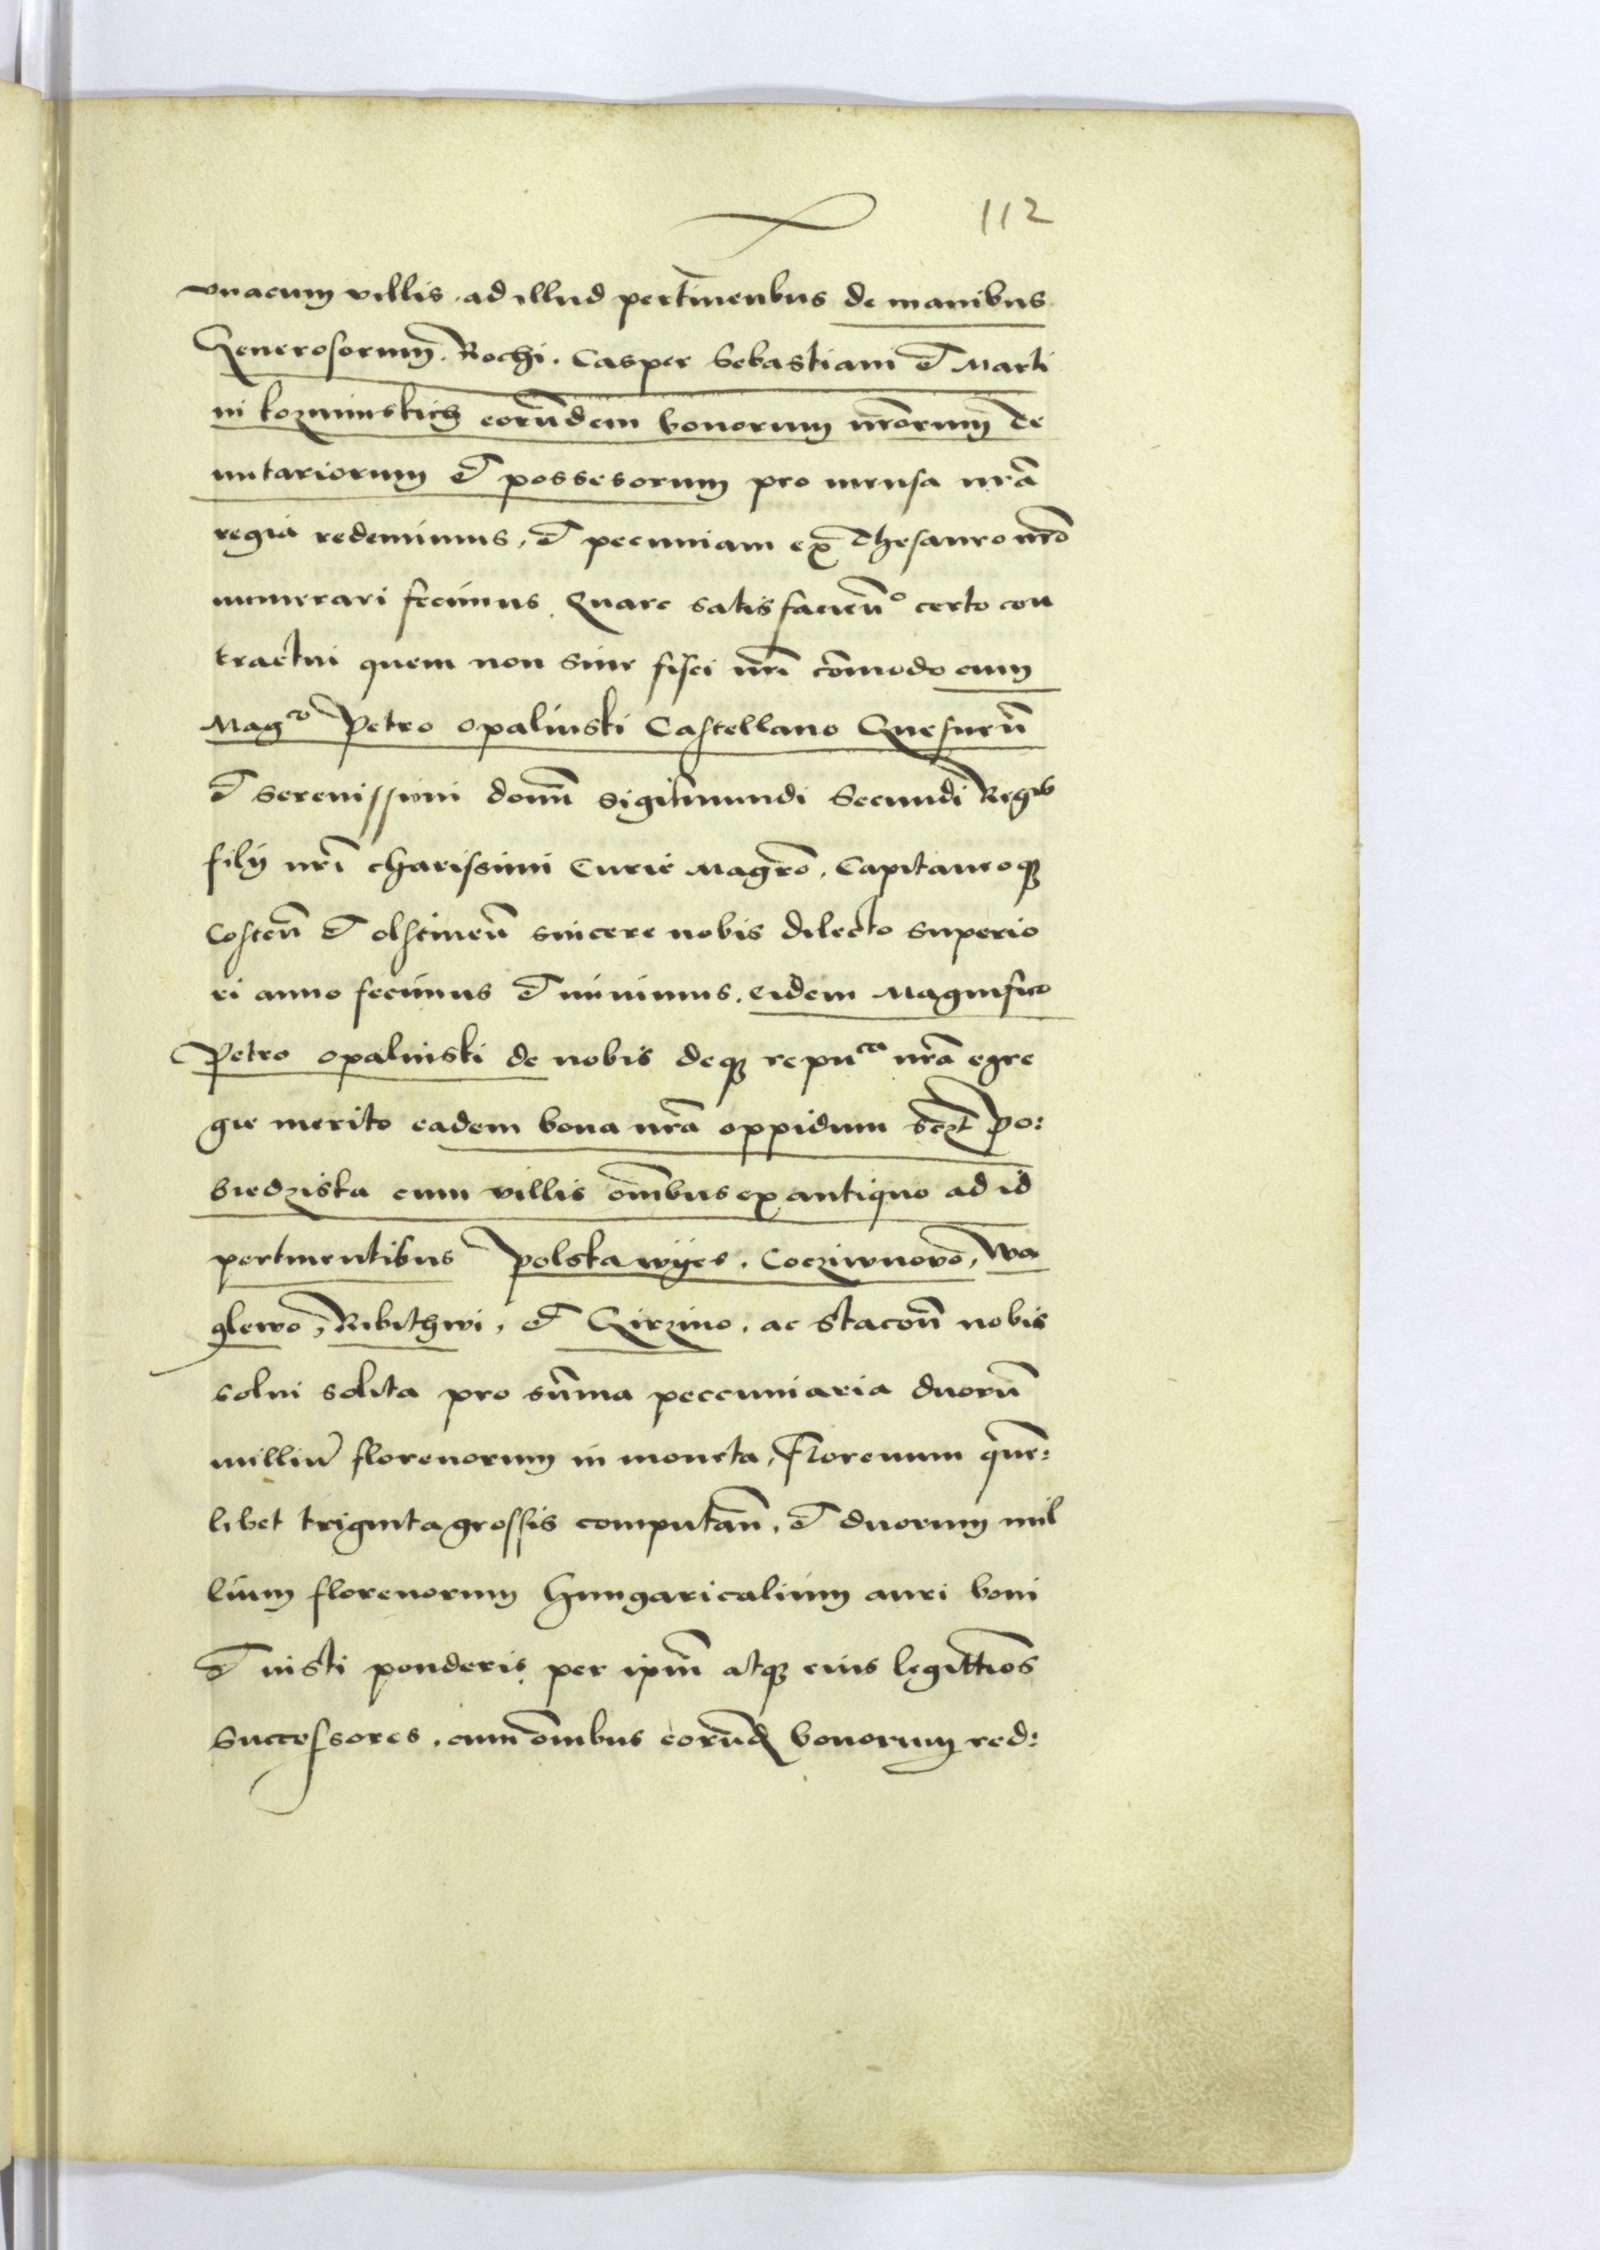 112
vnacum villis ad illud pertinen̄bus de manibus
Generosorum Rochi. Casper Sebastiani et Marti
ni kozminskich eorūdem bonorum nr̄orum te
nutariorum et possesorum pro mensa nr̄a
regia redemimus, et pecuniam ex Thesauro nr̄o
numerari fecimus Quare satisfacien̄º certo con
tractui quem non sine fisci nr̄i cōmodo cum
Mag^co Petro opalinski Castellano Gnesnen̄
et Serenissimi domī Sigismundi Secundi Regis
filij nr̄i charissimi Curie Magr̄o, Capitaneoq₃
Costen̄ et olstinen̄ sincere nobis dilecto superio
ri anno fecimus et inimus, eidem Magnifico
Petro opalinski de nobis deq₃ repu^ca nr̄a egre
gie merito eadem bona nr̄a oppidum scz̄t Po:
biedziska cum villis om̄ibus ex antiquo ad id
pertinentibus Polskawyes, Coczinnowo, Wa
glewo, Ribithwi, et Girzino, ac stacoñ nobis
solui solita pro sum̄a peccuniaria duorū
milliū florenorum in moneta, Florenum quem̄:
libet triginta grossis computan̄, et duorum mil
lium florenorum Hungaricalium auri boni
et iusti ponderis per ip̄m atq₃ eius legittīos
Successores, cum om̄ibus eorūd bonorum red: